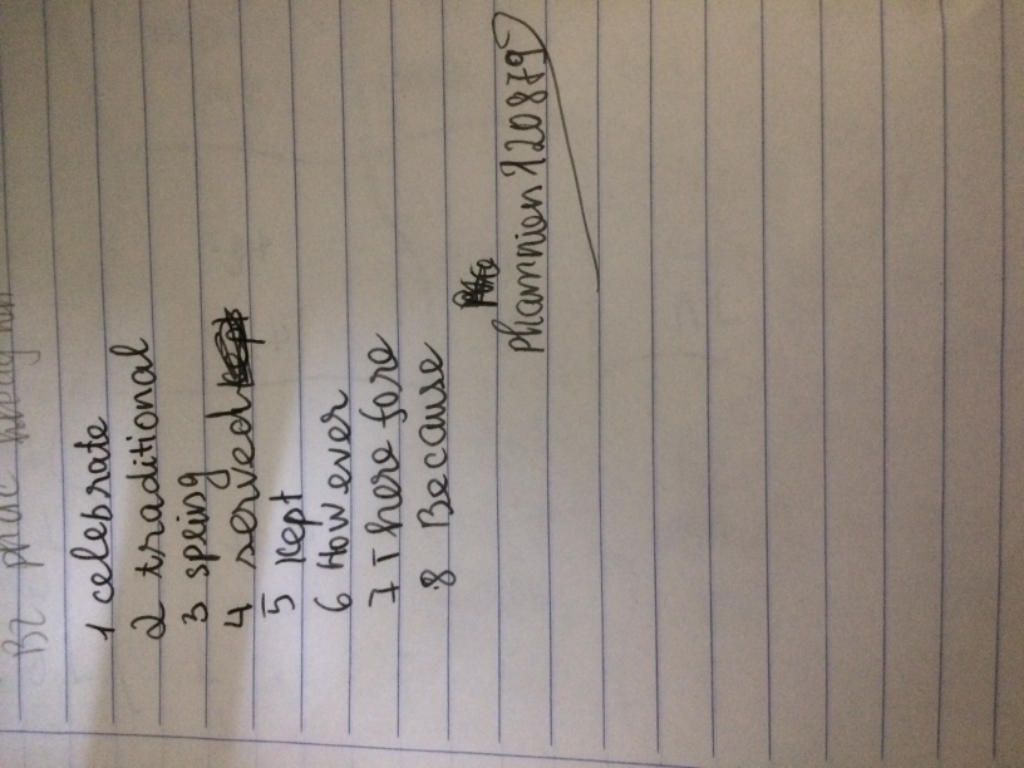 1 celebrate
2 traditional
3 speing
4 served
5 kept
6 However
7 There fore
8 Because
phamnien120879